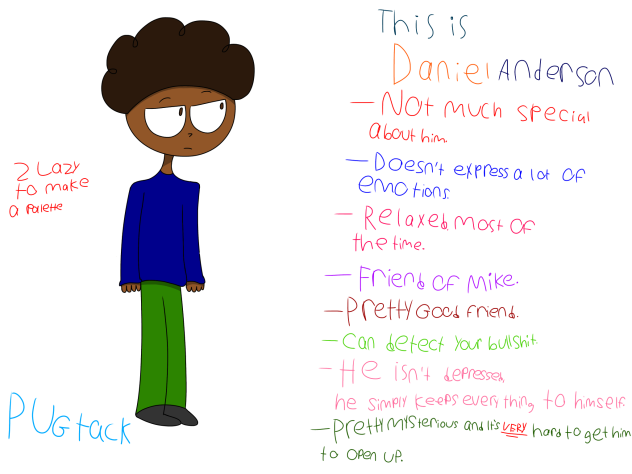 This is
Daniel Anderson
- Not much special
about him.
- Doesn't express a lot of
emotions.
- Relaxed most of
the time.
- Friend of Mike.
- Pretty Good friend.
- Can detect your bullshit.
- He isn't depressed,
he simply keeps everything to himself.
- Pretty mysterious and it's VERY hard to get him
to open up.
2 Lazy
to make
a palette
PUGtack